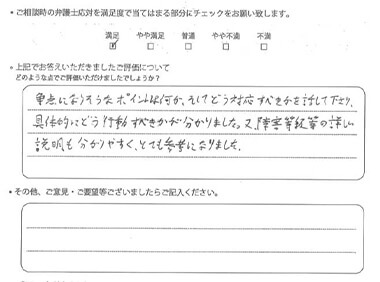 ・ご相談時の弁護士応対を満足度で当てはまる部分にチェックをお願い致します。
満足 やや満足 普通 やや不満 不満
☑ □ □ □ □
・上記でお答えいただきましたご評価について
どのような点でご評価いただけましたでしょうか?
争点になりそうなポイントは何か、そしてどう対応すべきかを話して下さり、
具体的にどう行動すべきかが分かりました。又、障害等級等の詳しい
説明も分かりやすく、とても参考になりました。
・その他、ご意見・ご要望等ございましたらご記入ください。